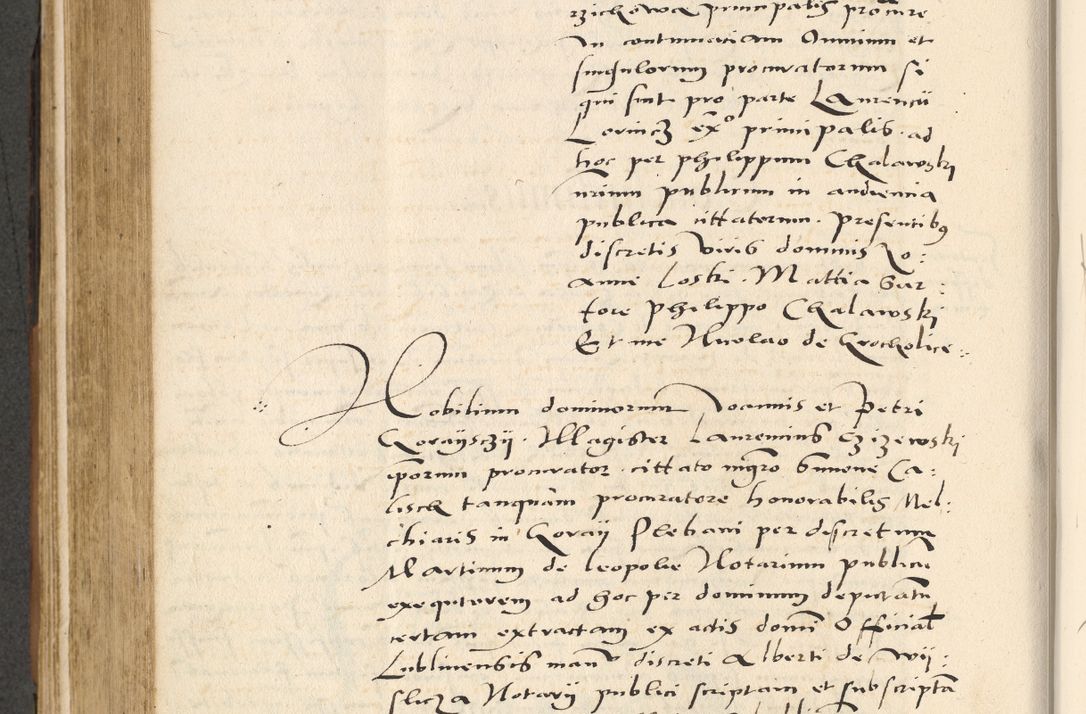 rzichowa principalis procuratore
in contumaciam Omnium et
singulorum procuratorum si
qui sint pro parte Laurencii
Lorincz ex° principalis ad
hoc per philippum Chalawski
nrium publicum in audiencia
publica cittatorum. Presentibus
discretis viris dominis Jo:
anne Loski. Mattia Sar:
tore Philippo Chalawski
Et me Nicolao de Grocholice
Nobilium dominorum Joannis et Petri
Gorayszij. Magister Laurencius Czizewski
ipsorum procurator cittato mgro Simone Ca:
lisch tanquam procuratore honorabilis Mel:
chiaris in Goraij Plebani per discretum
Martinum de Leopolie Notarium publicu
exequutorem ad hoc per dominum deputatu
certam extractam ex actis domi Official
Lublinensis manu discreti Alberti de Wij:
slicza Notarij publici scriptam et subscripta